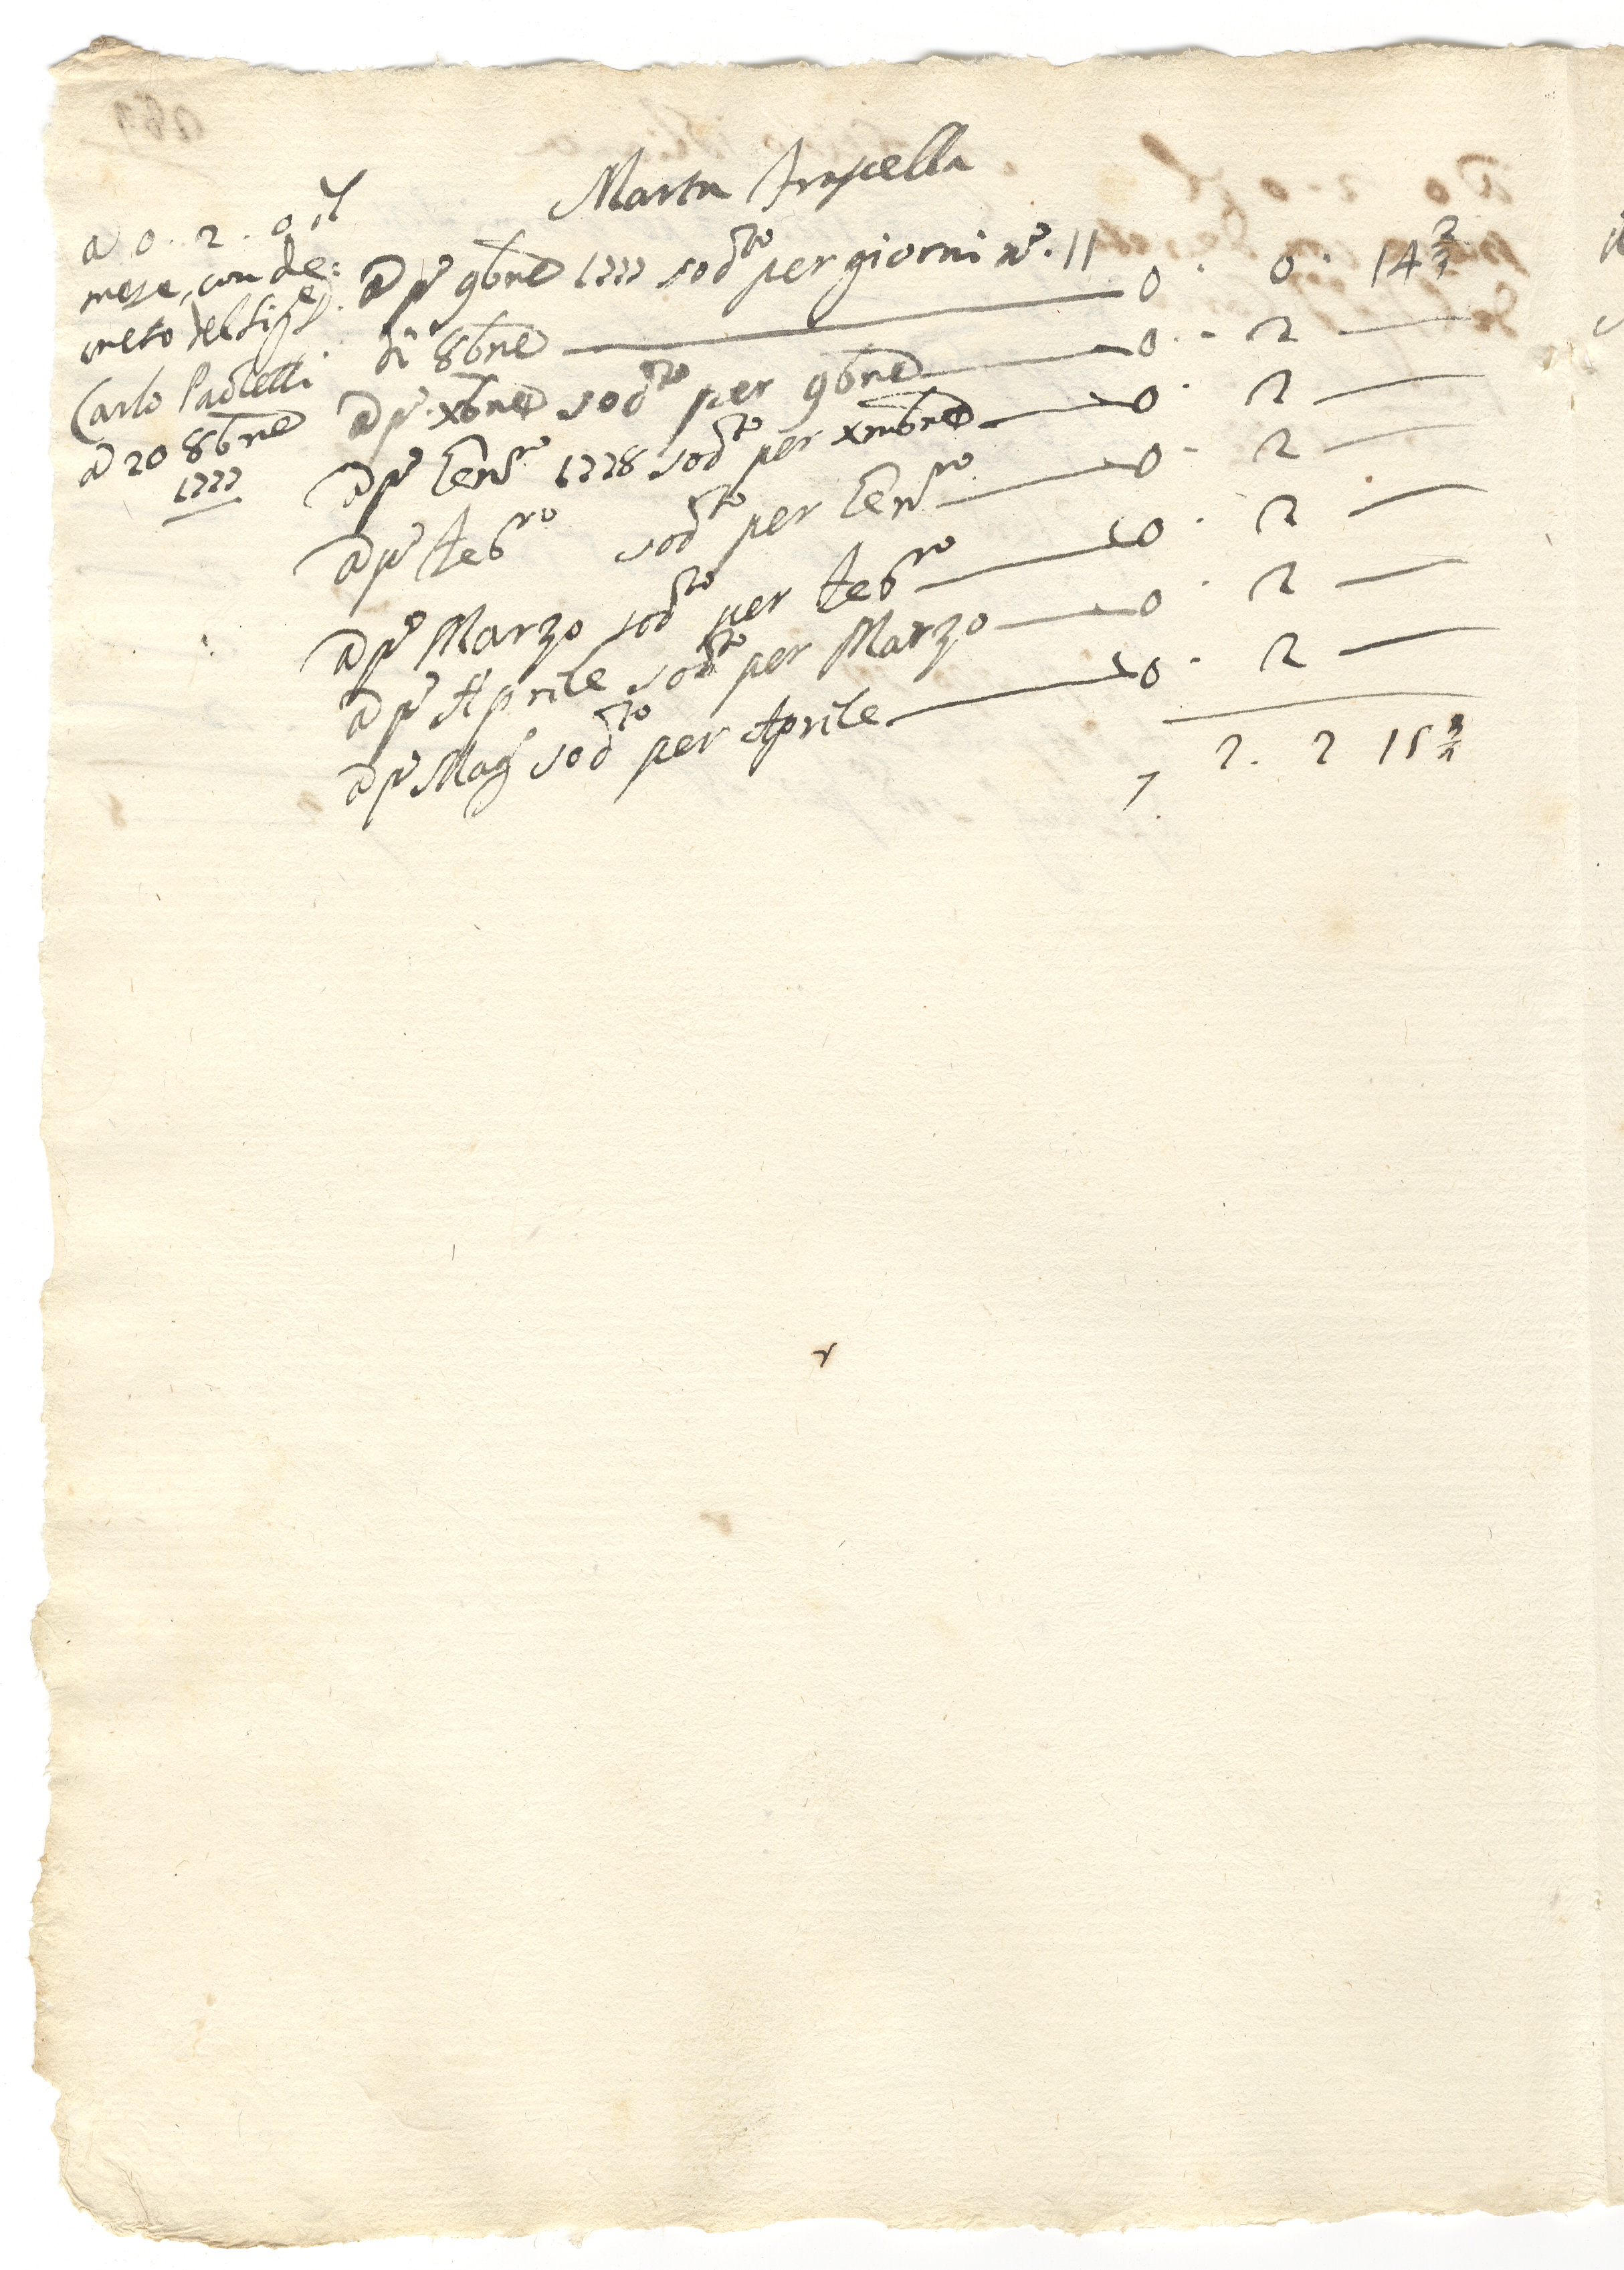 Marta Frascella
a 0 . 2 . 0 il
mese, con de=
creto del Sig.e
Carlo Paoletti
a 20 8bre
1777
a p.o 9bre 1777 sod.to per giorni n.o 11
di 8bre 0 . 0 . 14 2/3
a p.o xbre sod.to per 9bre 0 . 2 —
a p.o Gen.ro 1778 sod.to per xmbre 0 . 2 —
a p.o Feb.ro sod.to per Gen.ro 0 . 2 —
a p.o Marzo sod.to per Feb.ro 0 . 2 —
a p.o Aprile sod.to per Marzo 0 . 2 —
a p.o Mag.o sod.to per Aprile 0 . 2 —
2 . 2 15